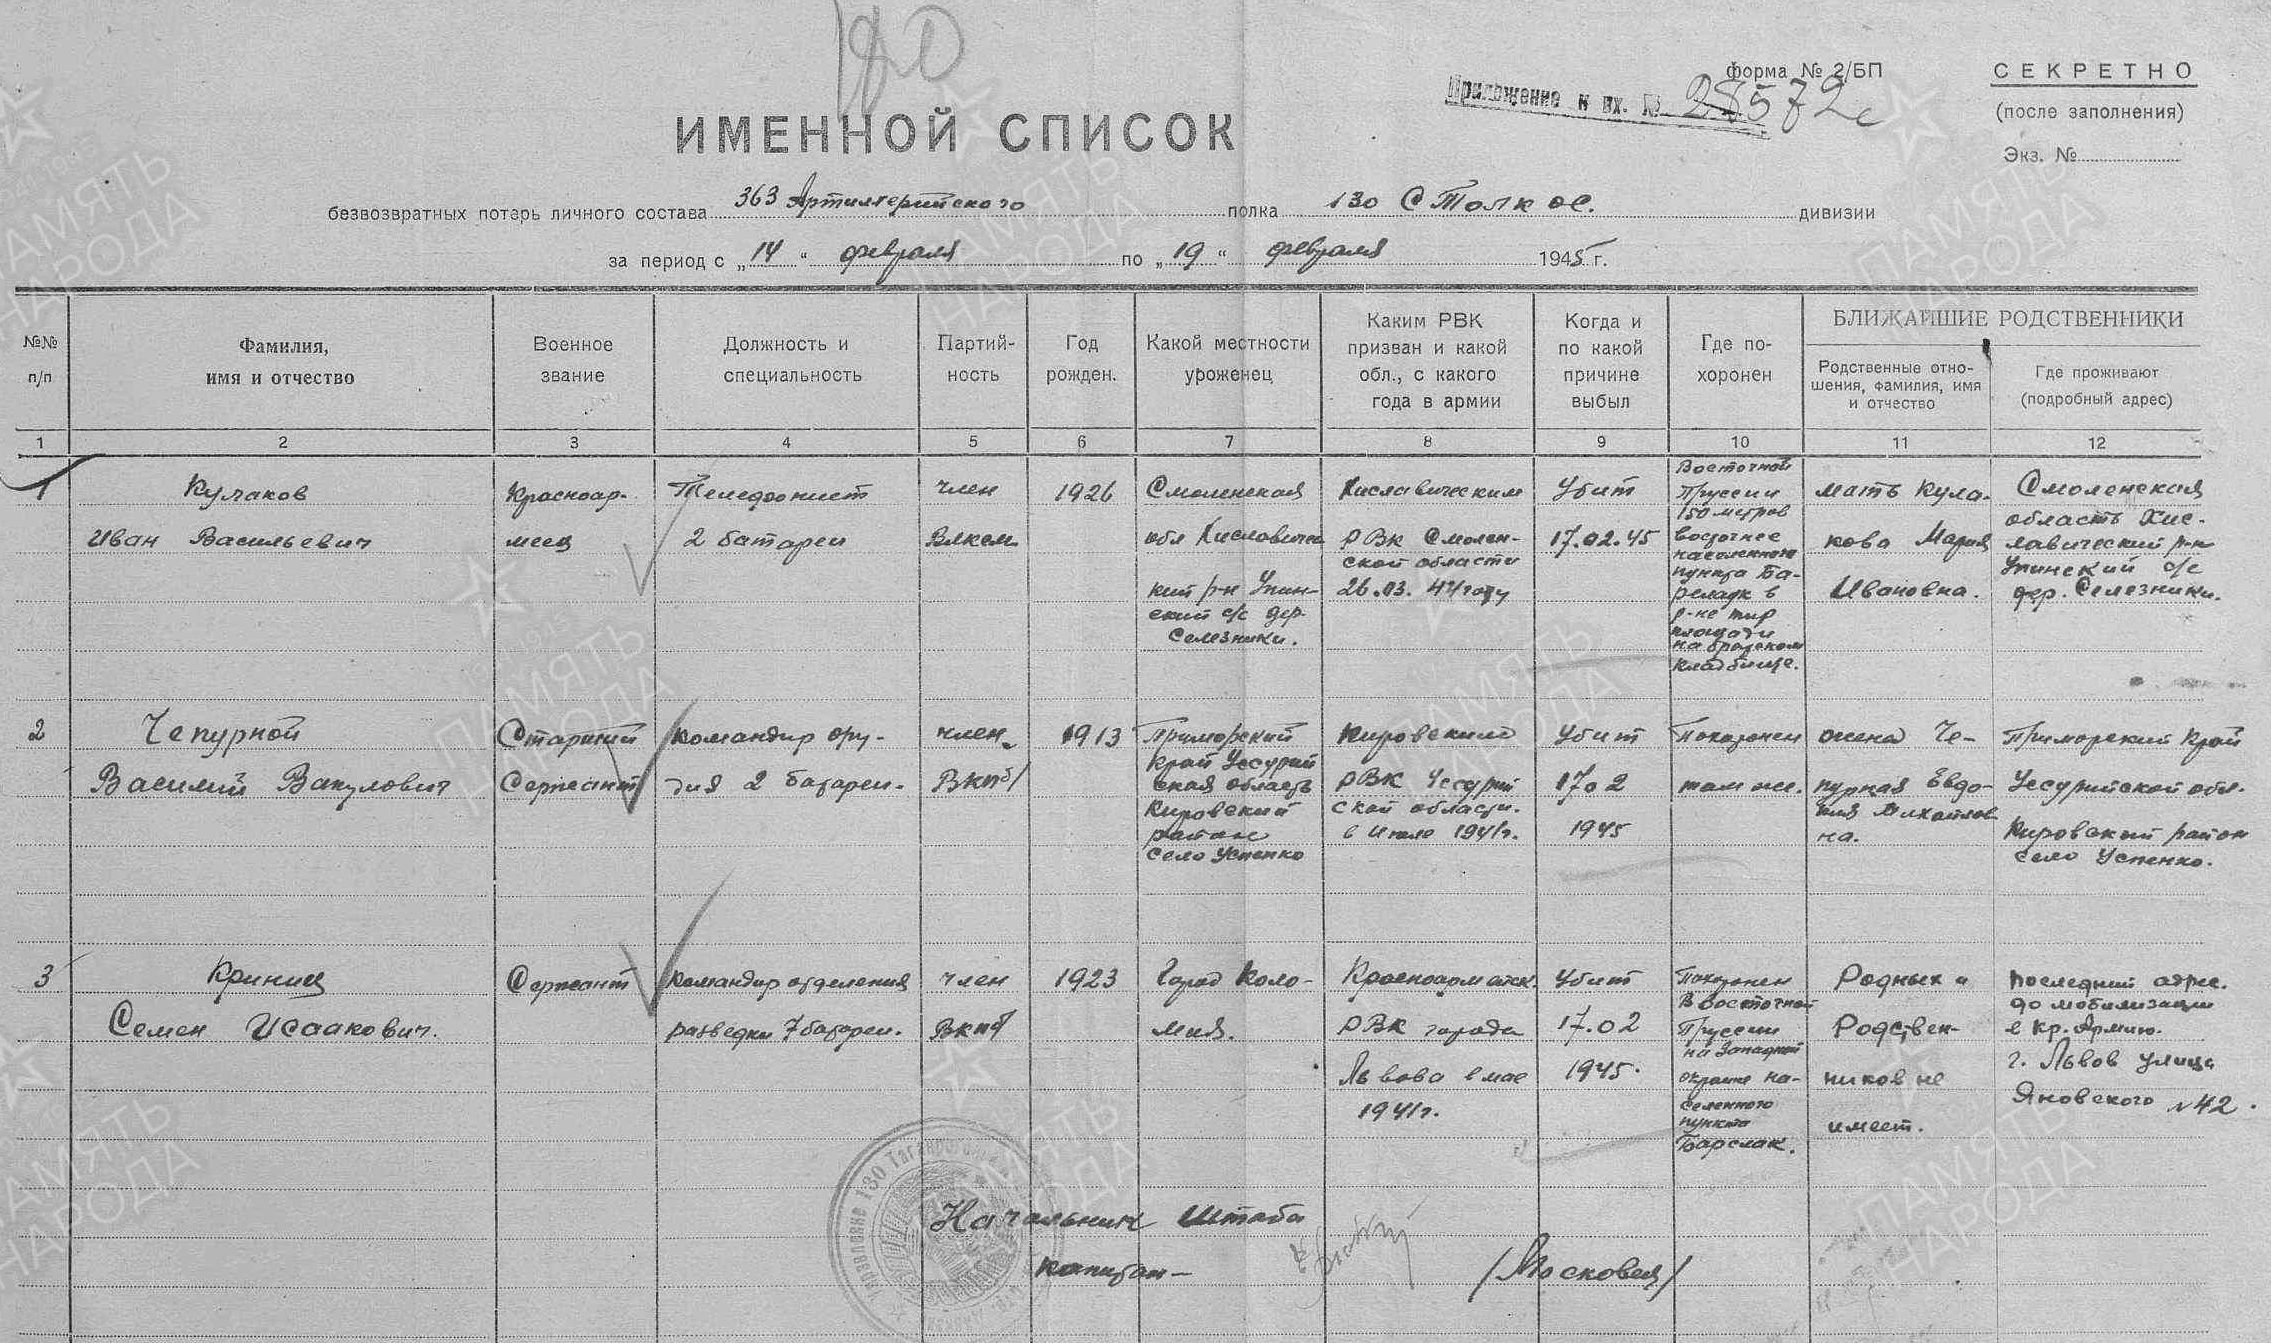 180
форма № 2/БП
СЕКРЕТНО
Приложение к вх. № 28572с
(после заполнения)
ИМЕННОЙ СПИСОК
Экз. №
безвозвратных потерь личного состава 363 Артиллерийского полка 130 СТолк ос. дивизии
за период с „14“ февраля по „19“ февраля 1945 г.
№№ п/п
Фамилия, имя и отчество
Военное звание
Должность и специальность
Партий-ность
Год рожден.
Какой местности уроженец
Каким РВК призван и какой обл., с какого года в армии
Когда и по какой причине выбыл
Где по-хоронен
БЛИЖАЙШИЕ РОДСТВЕННИКИ
Родственные отно-шения, фамилия, имя и отчество
Где проживают (подробный адрес)
1 2 3 4 5 6 7 8 9 10 11 12
1
Кулаков
Иван Васильевич
Красноар-
меец
Телефонист
2 батареи
член
Влксм
1926
Смоленская
обл Хисловичес
кий р-н Упин-
ский с/с дер.
Селезники.
Хиславическим
РВК Смолен-
ской области
26.03.44 году
Убит
17.02.45
Восточной
Пруссии
150 метров
восточнее
населенного
пункта Ба-
реладк в
р-не
площади
на братском
кладбище.
мать Кула-
кова Мария
Ивановна.
Смоленская
область Хис-
лавический р-н
Упинский с/с
дер. Селезники.
2
Чепурной
Василий Вакулович
Старший
Сержант
Командир ору-
дия 2 батареи.
член
ВКПб/
1913
Приморский
Край Уссурий
ская область
Кировский
район
село Успенко
Кировским
РВК Уссурий
ской области.
в Июле 1941г.
Убит
1702
1945
Похоронен
там же.
жена Че-
пурная Евдо-
кия Михайлов
на.
Приморский Край
Уссурийской обл.
Кировский район
село Успенко.
3
Криниц
Семен Исаакович.
Сержант
Командир отделения
разведки 7 батареи.
член
ВКПб
1923
Город Коло-
мия.
Красноармейск.
РВК города
Львова в мае
1941г.
Убит
17.02
1945.
Похоронен
В восточной
Пруссии
на Западной
окраине на-
селенного
пункта
Барслак.
Родных и
Родствен-
ников не
имеет.
последний адрес.
до мобилизации
в Кр. Армию.
г. Львов улица
Яновского №42.
Управление 130 Таганрогской
Начальник Штаба
капитан-
/Московец/
ПАМЯТЬ НАРОДА